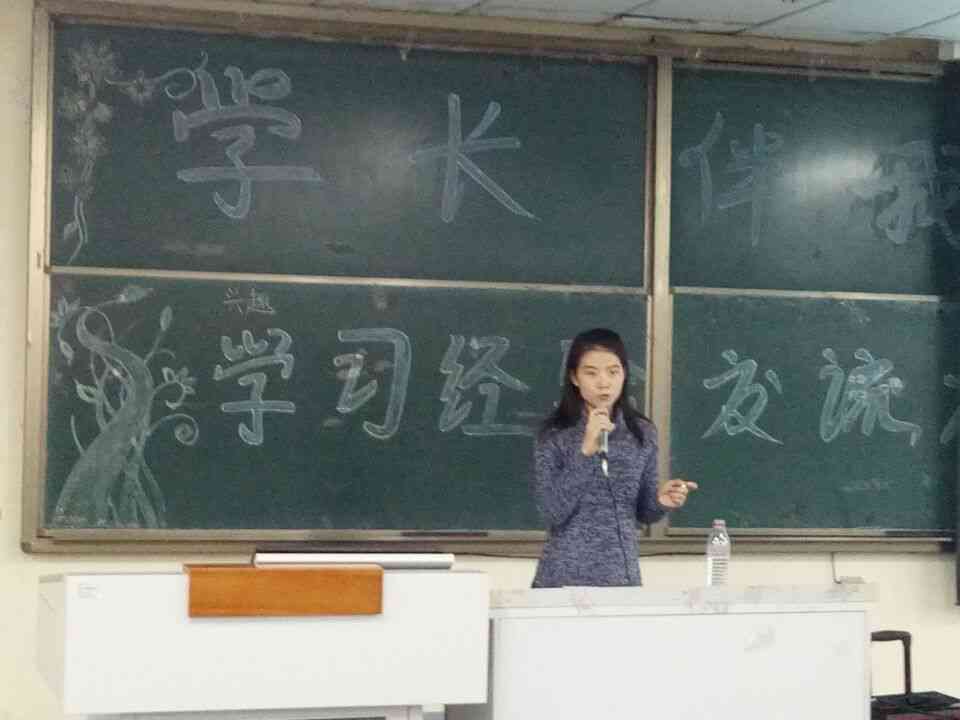 学长伴我
兴趣
学习经 交流